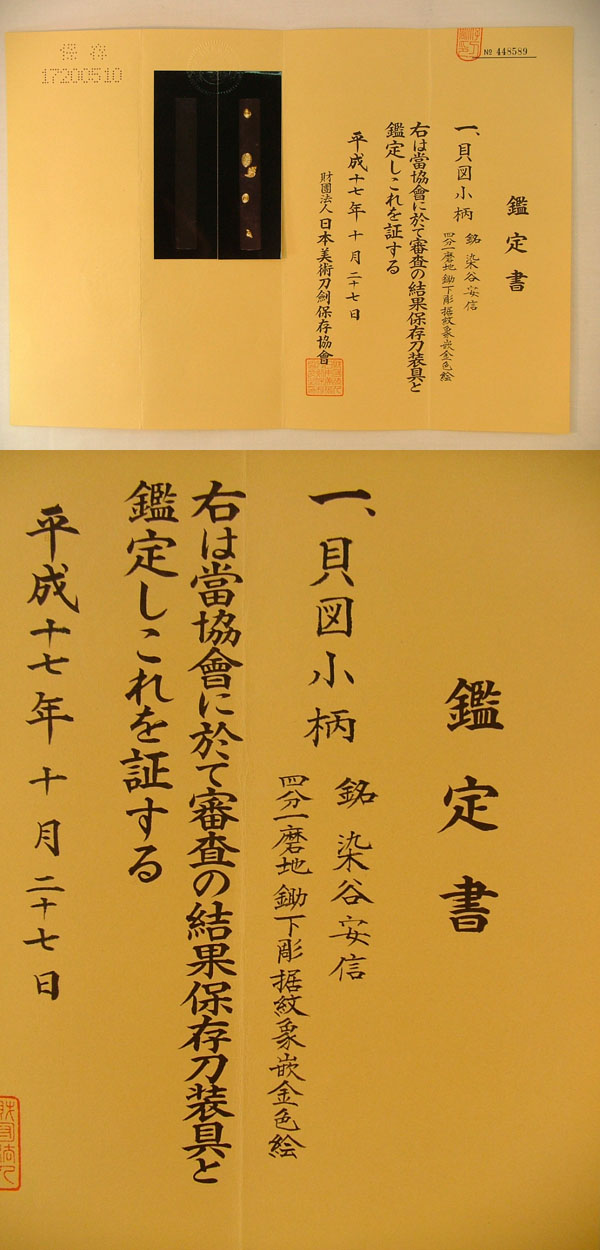 鑑定書
一、貝図小柄
銘 染谷安信
四分一磨地 鋤下彫据紋象嵌金色絵
右は當協會に於て審査の結果保存刀装具と
鑑定しこれを証する
平成十七年 十月二十七日
財團法人 日本美術刀劍保存協會
№ 448589
保存
17200510
鑑定書
一、貝図小柄
銘 染谷安信
四分一磨地 鋤下彫据紋象嵌金色絵
右は當協會に於て審査の結果保存刀装具と
鑑定しこれを証する
平成十七年 十月二十七日